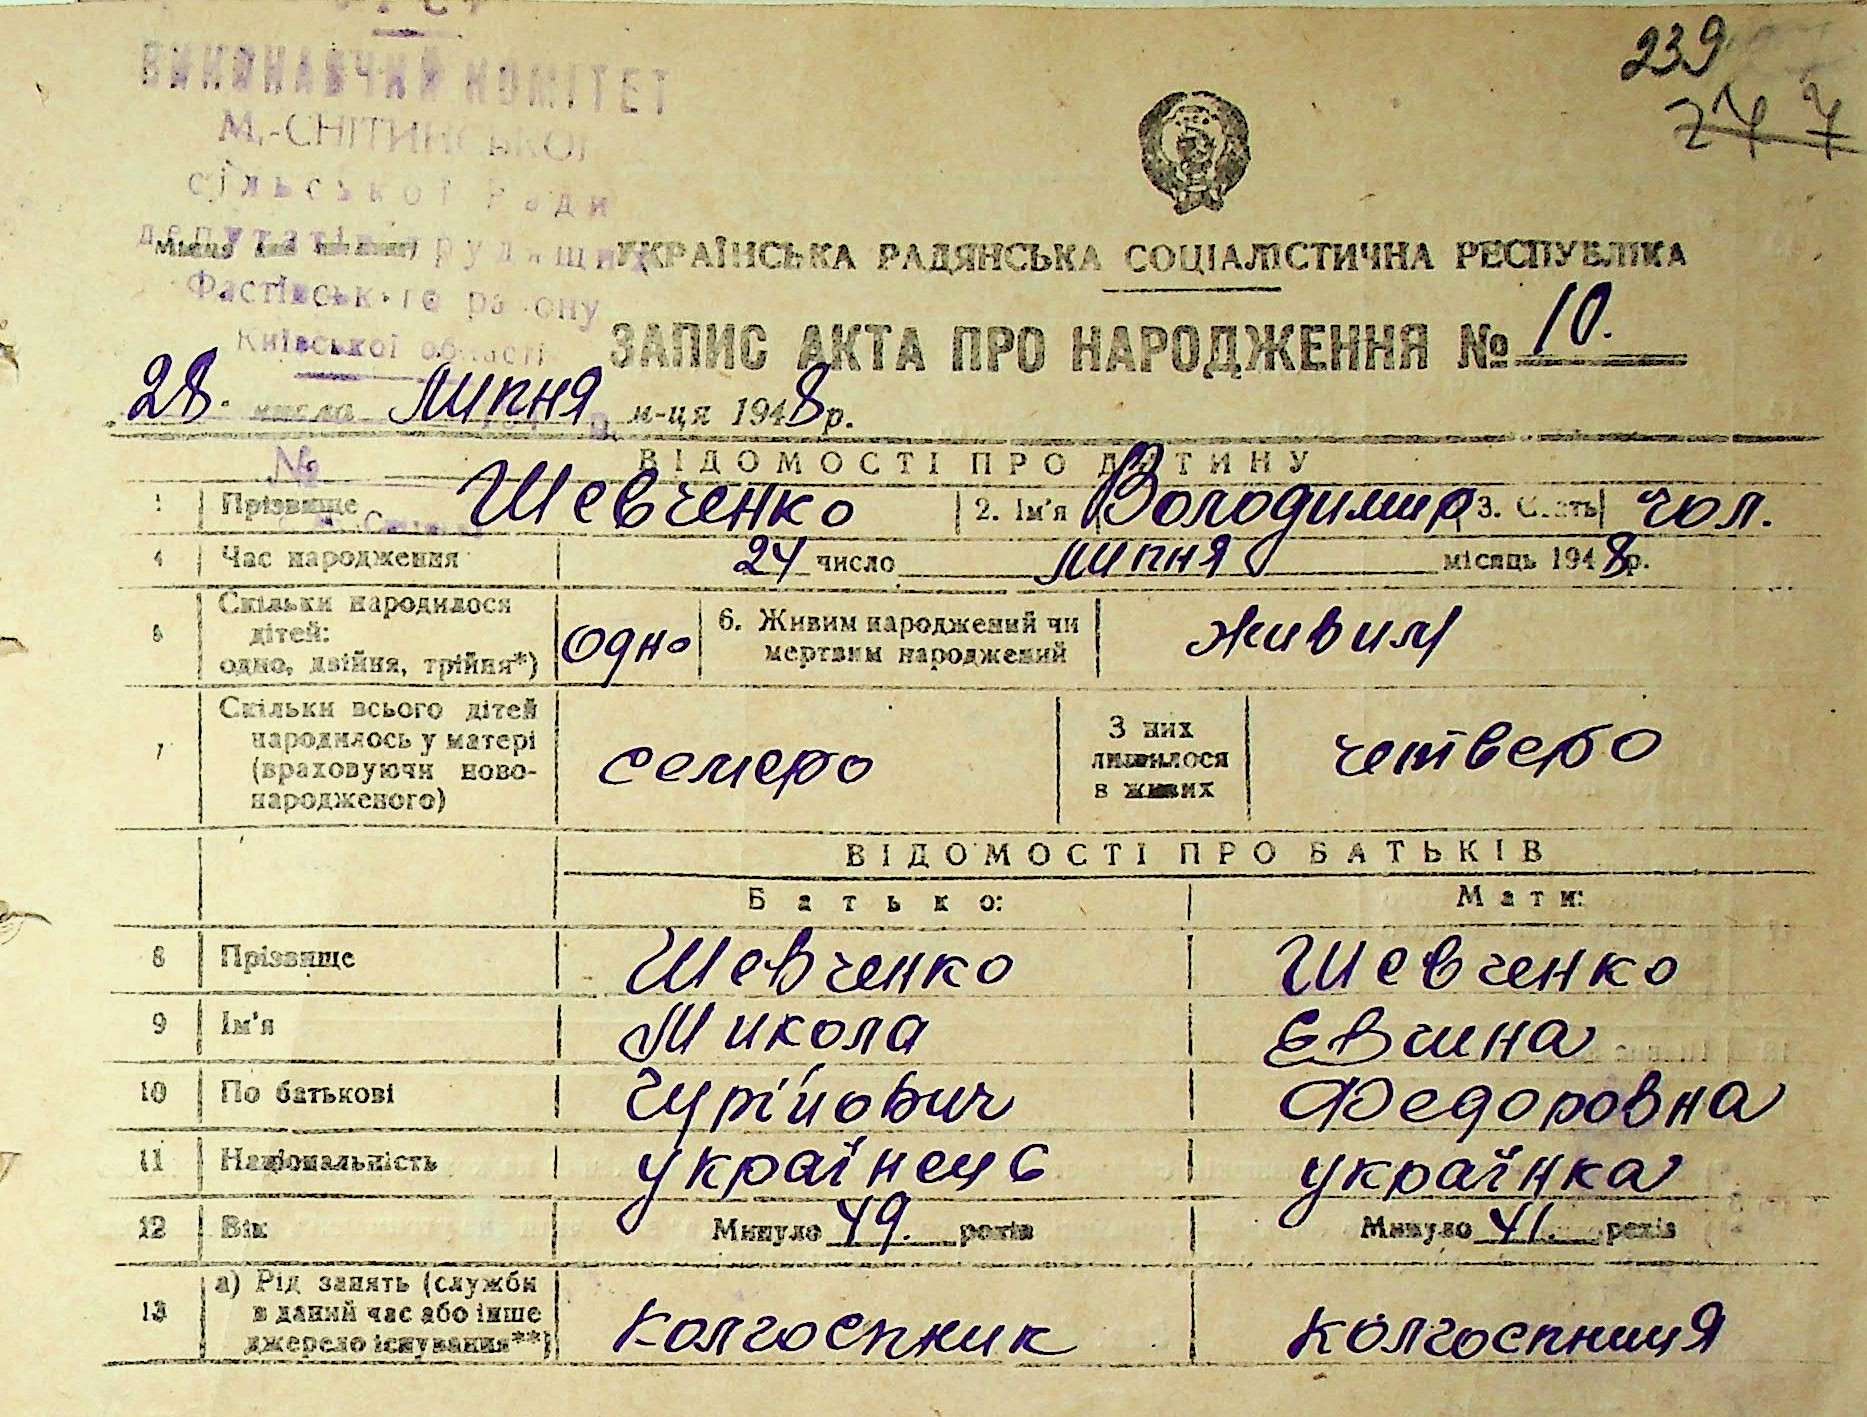 239
247
ВИКОНАВЧИЙ КОМІТЕТ
М.-СНІТИНСЬКОЇ
сільської Ради
депутатів трудящих
Фастівського району
Київської області
№
УКРАЇНСЬКА РАДЯНСЬКА СОЦІАЛІСТИЧНА РЕСПУБЛІКА
ЗАПИС АКТА ПРО НАРОДЖЕННЯ № 10.
28. числа липня м-ця 1948 р.
ВІДОМОСТІ ПРО ДИТИНУ
1 Прізвище Шевченко 2. Ім'я Володимир 3. Стать чол.
4 Час народження 24 число липня місяць 1948 р.
5 Скільки народилося
дітей:
одно, двійня, трійня*) одно 6. Живим народжений чи
мертвим народжений живим
7 Скільки всього дітей
народилось у матері
(враховуючи ново-
народженого) семеро З них
лишилося
в живих четверо
ВІДОМОСТІ ПРО БАТЬКІВ
Батько: Мати:
8 Прізвище Шевченко Шевченко
9 Ім'я Микола Євгина
10 По батькові Гурійович Федоровна
11 Національність українець українка
12 Вік Минуло 49. років Минуло 41. років
13 а) Рід занять (служби
в даний час або інше
джерело існування**) колгоспник колгоспниця